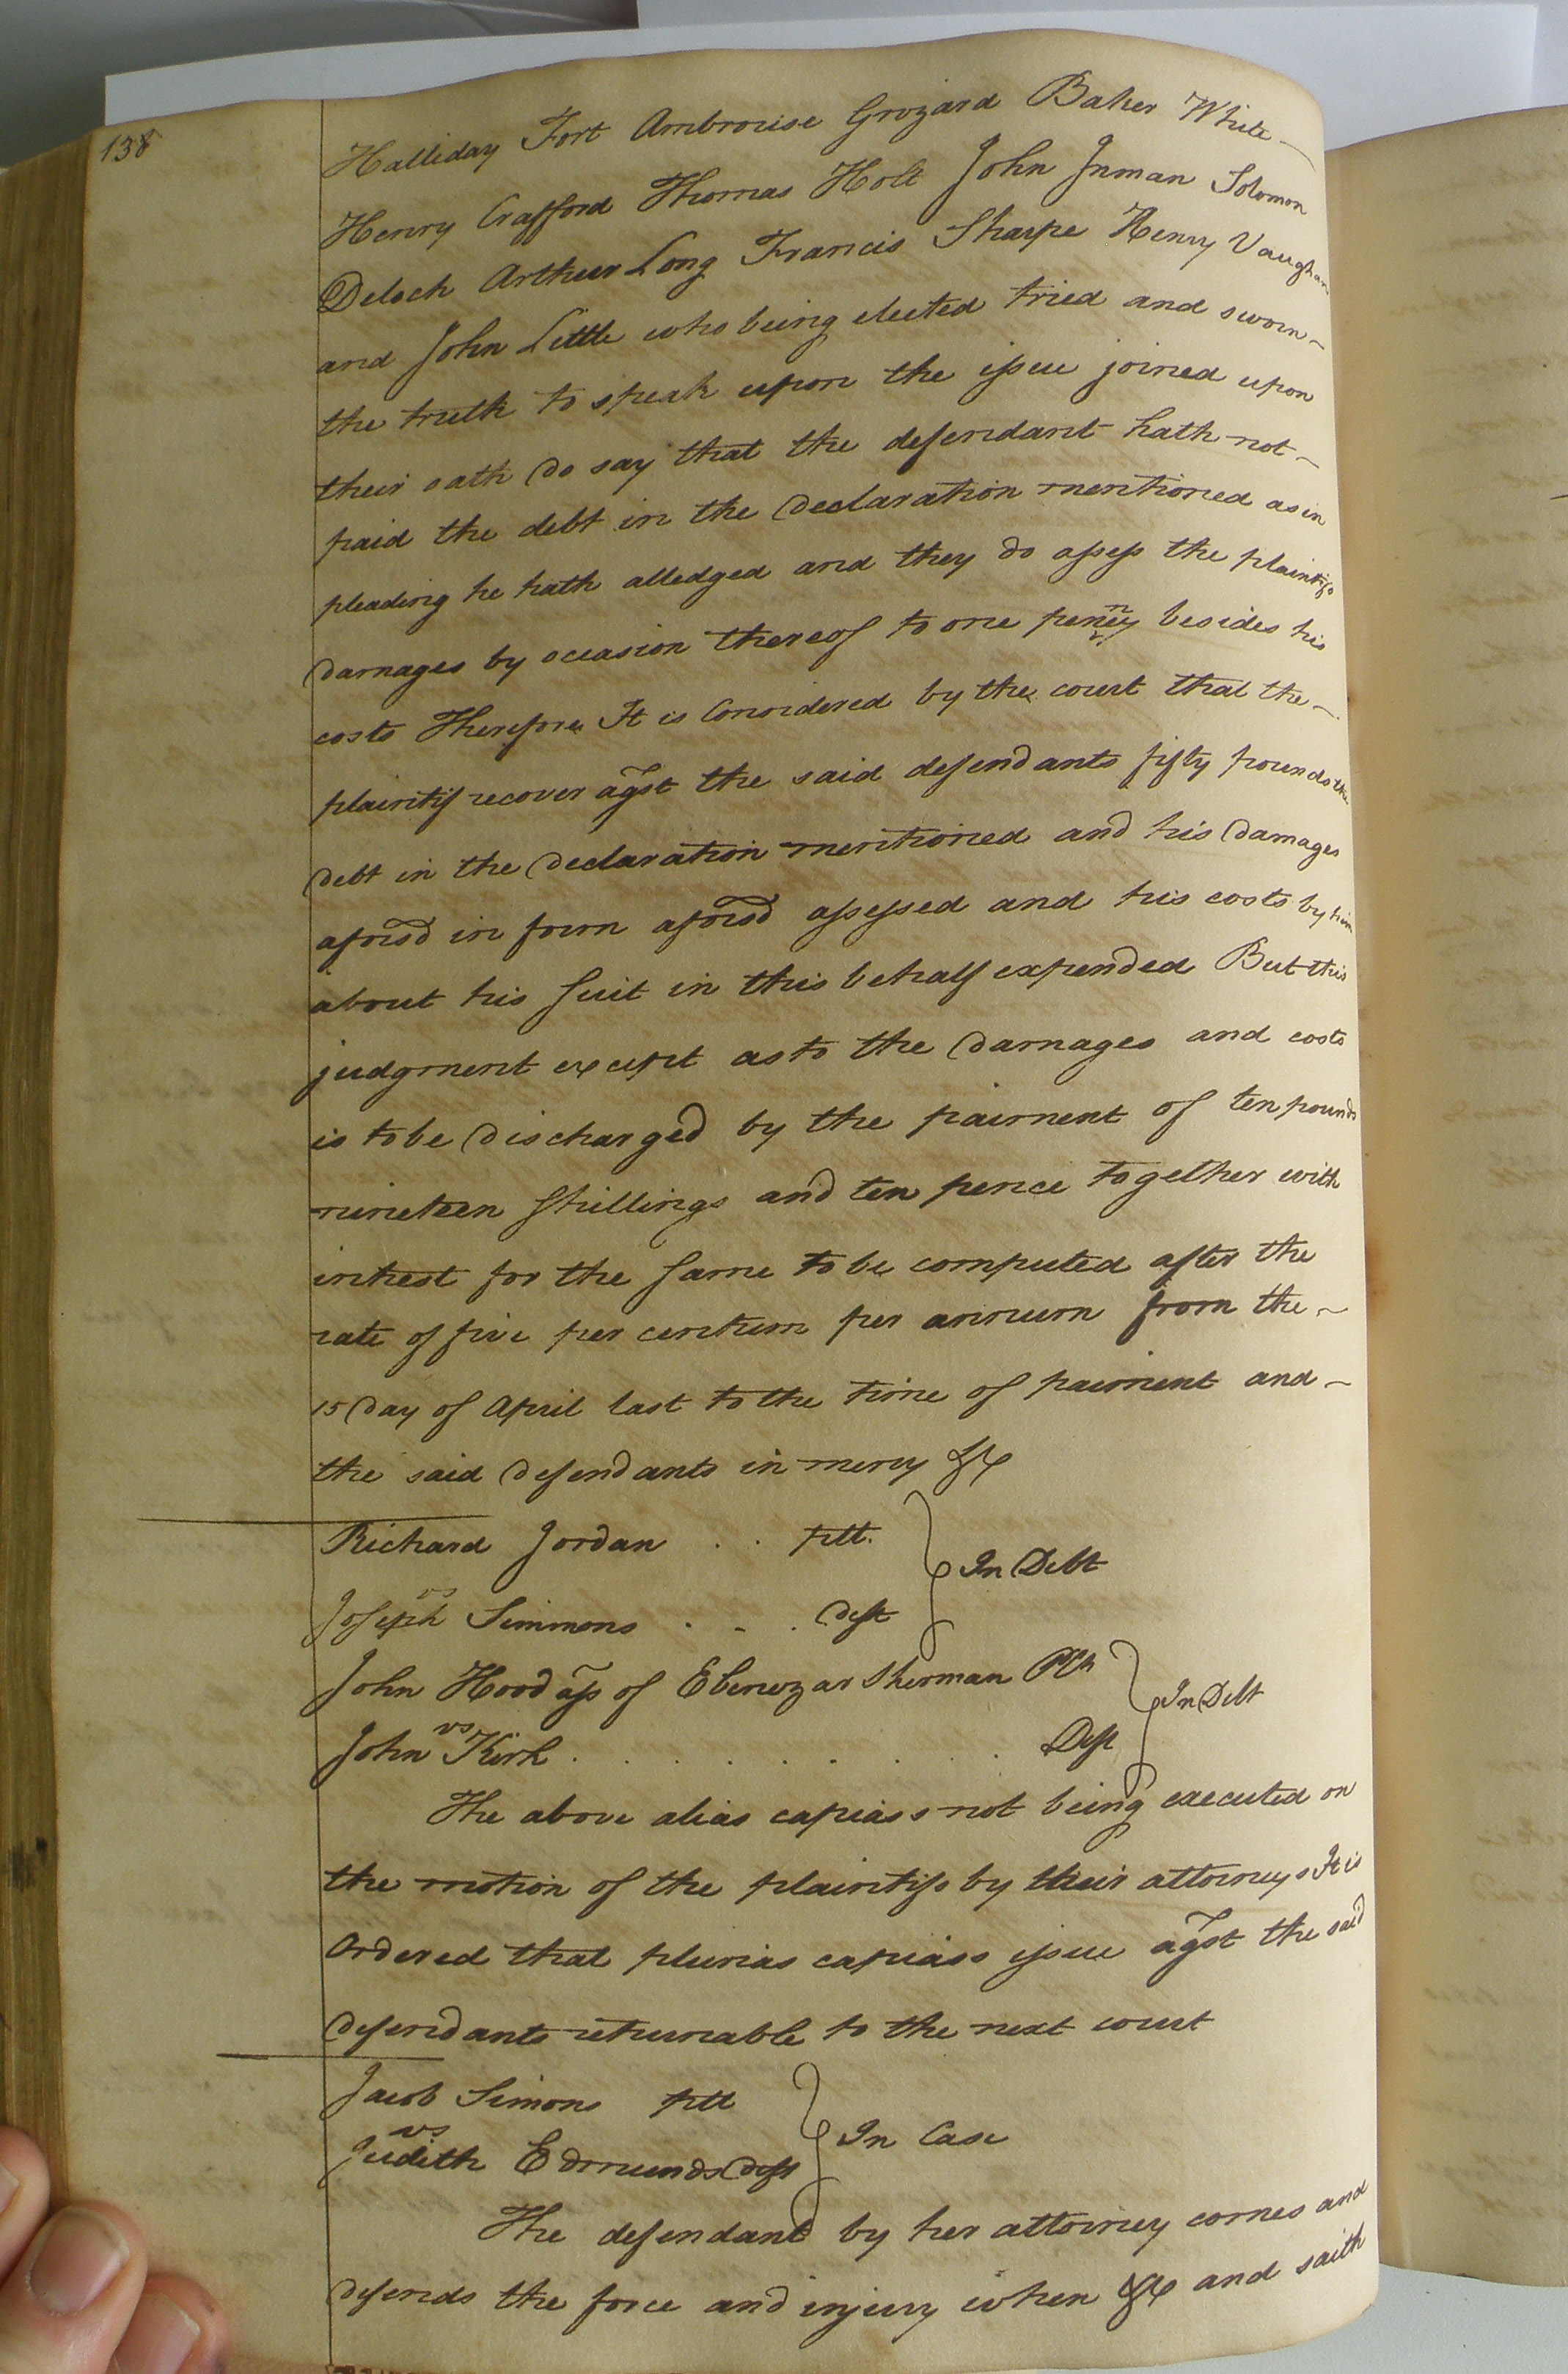 138
Halliday Fort Ambrouse Grozard Baker White
Henry Crafford Thomas Holt John Inman Solomon
Deloch Arthur Long Francis Sharpe Henry Vaughan
and John Little who being elected tried and sworn
the truth to speak upon the issue joined upon
their oath do say that the defendant hath not
paid the debt in the declaration mentioned as in
pleading he hath alledged and they do assess the plaintifs
damages by occasion thereof to one penny besides his
costs Therefore It is Considered by the court that the
plaintif recover agst the said defendants fifty pounds the
debt in the declaration mentioned and his damages
aforsd in form aforsd assessed and his costs by him
about his suit in this behalf expended But this
judgment except as to the damages and costs
is to be discharged by the paiment of ten pounds
nineteen shillings and ten pence together with
intrest for the same to be computed after the
rate of five per centum per annum from the
15 day of April last to the time of paiment and
the said defendants in mercy &c
Richard Jordan . . plt.
vs
In Debt
Joseph Simmons . . . deft
John Hood ass of Ebenezar Sherman Plt
vs
In Debt
John Kirk . . . . . . . Deft
The above alias capiass not being executed on
the motion of the plaintifs by their attorneys It is
Ordered that plurias capiass issue agst the said
defendants returnable to the next court
Jacob Simons plt
vs
In Case
Judith Edmunds deft
The defendant by her attorney comes and
defends the force and injury when &c and saith